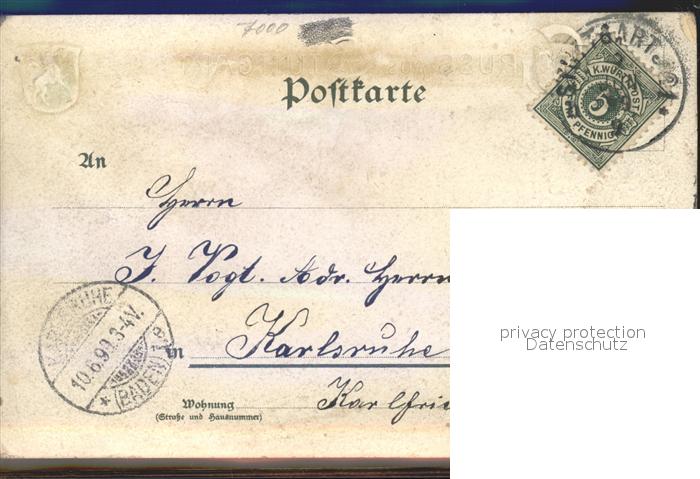 7000
STUTTGART
K.WÜRTT.POST
5
PFENNIG
Postkarte
An
Herrn
J. Vogt. Adr. Herrn
in Karlsruhe
KARLSRUHE
10.6.99. 3-4V.
BADEN
Wohnung
Karlfrie
(Straße und Hausnummer)
privacy protection
Datenschutz